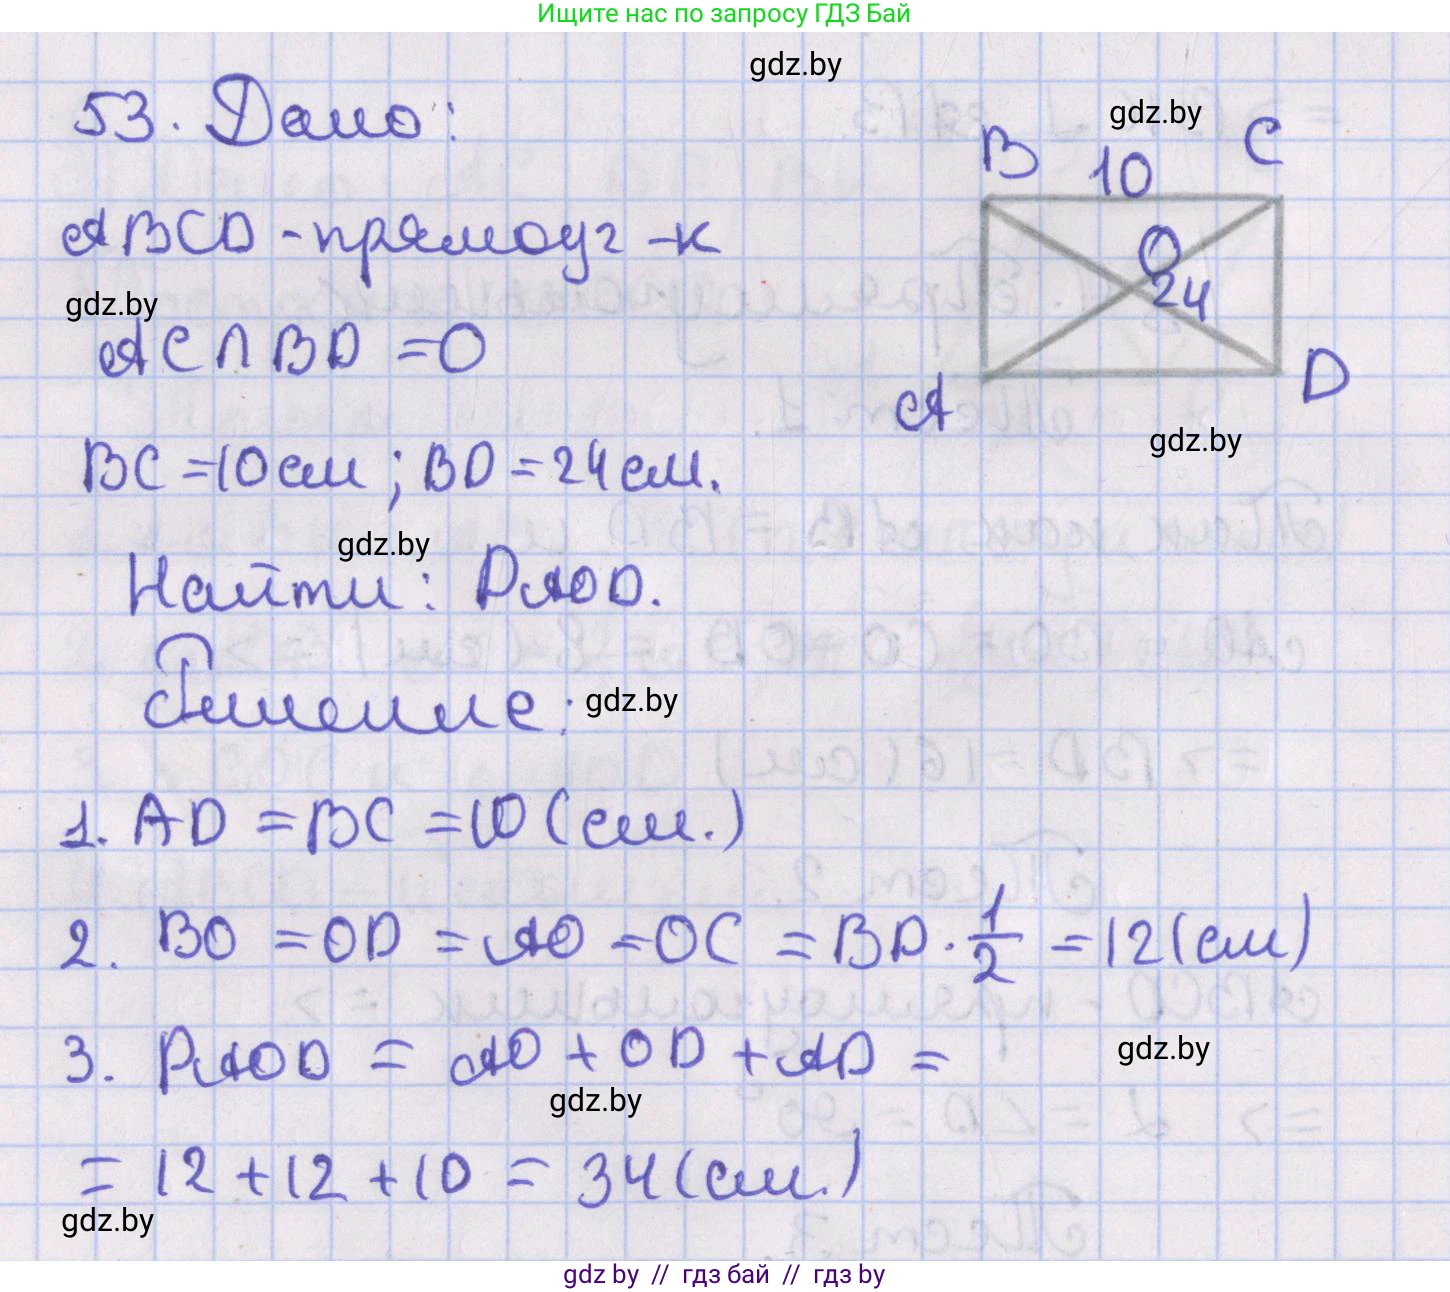 Ищите нас по запросу ГДЗ Бай
gdz.by
53. Дано:
gdz.by
B 10 C
ABCD - прямоуг-к
O
24
gdz.by
AC ∩ BD = O
A D
gdz.by
BC = 10 см ; BD = 24 см.
gdz.by
Найти: PAOD.
Решение:
gdz.by
1. AD = BC = 10 (см.)
2. BO = OD = AO = OC = BD · 1/2 = 12 (см)
3. PAOD = AO + OD + AD =
gdz.by
gdz.by
= 12 + 12 + 10 = 34 (см.)
gdz.by
gdz by // гдз бай // гдз by